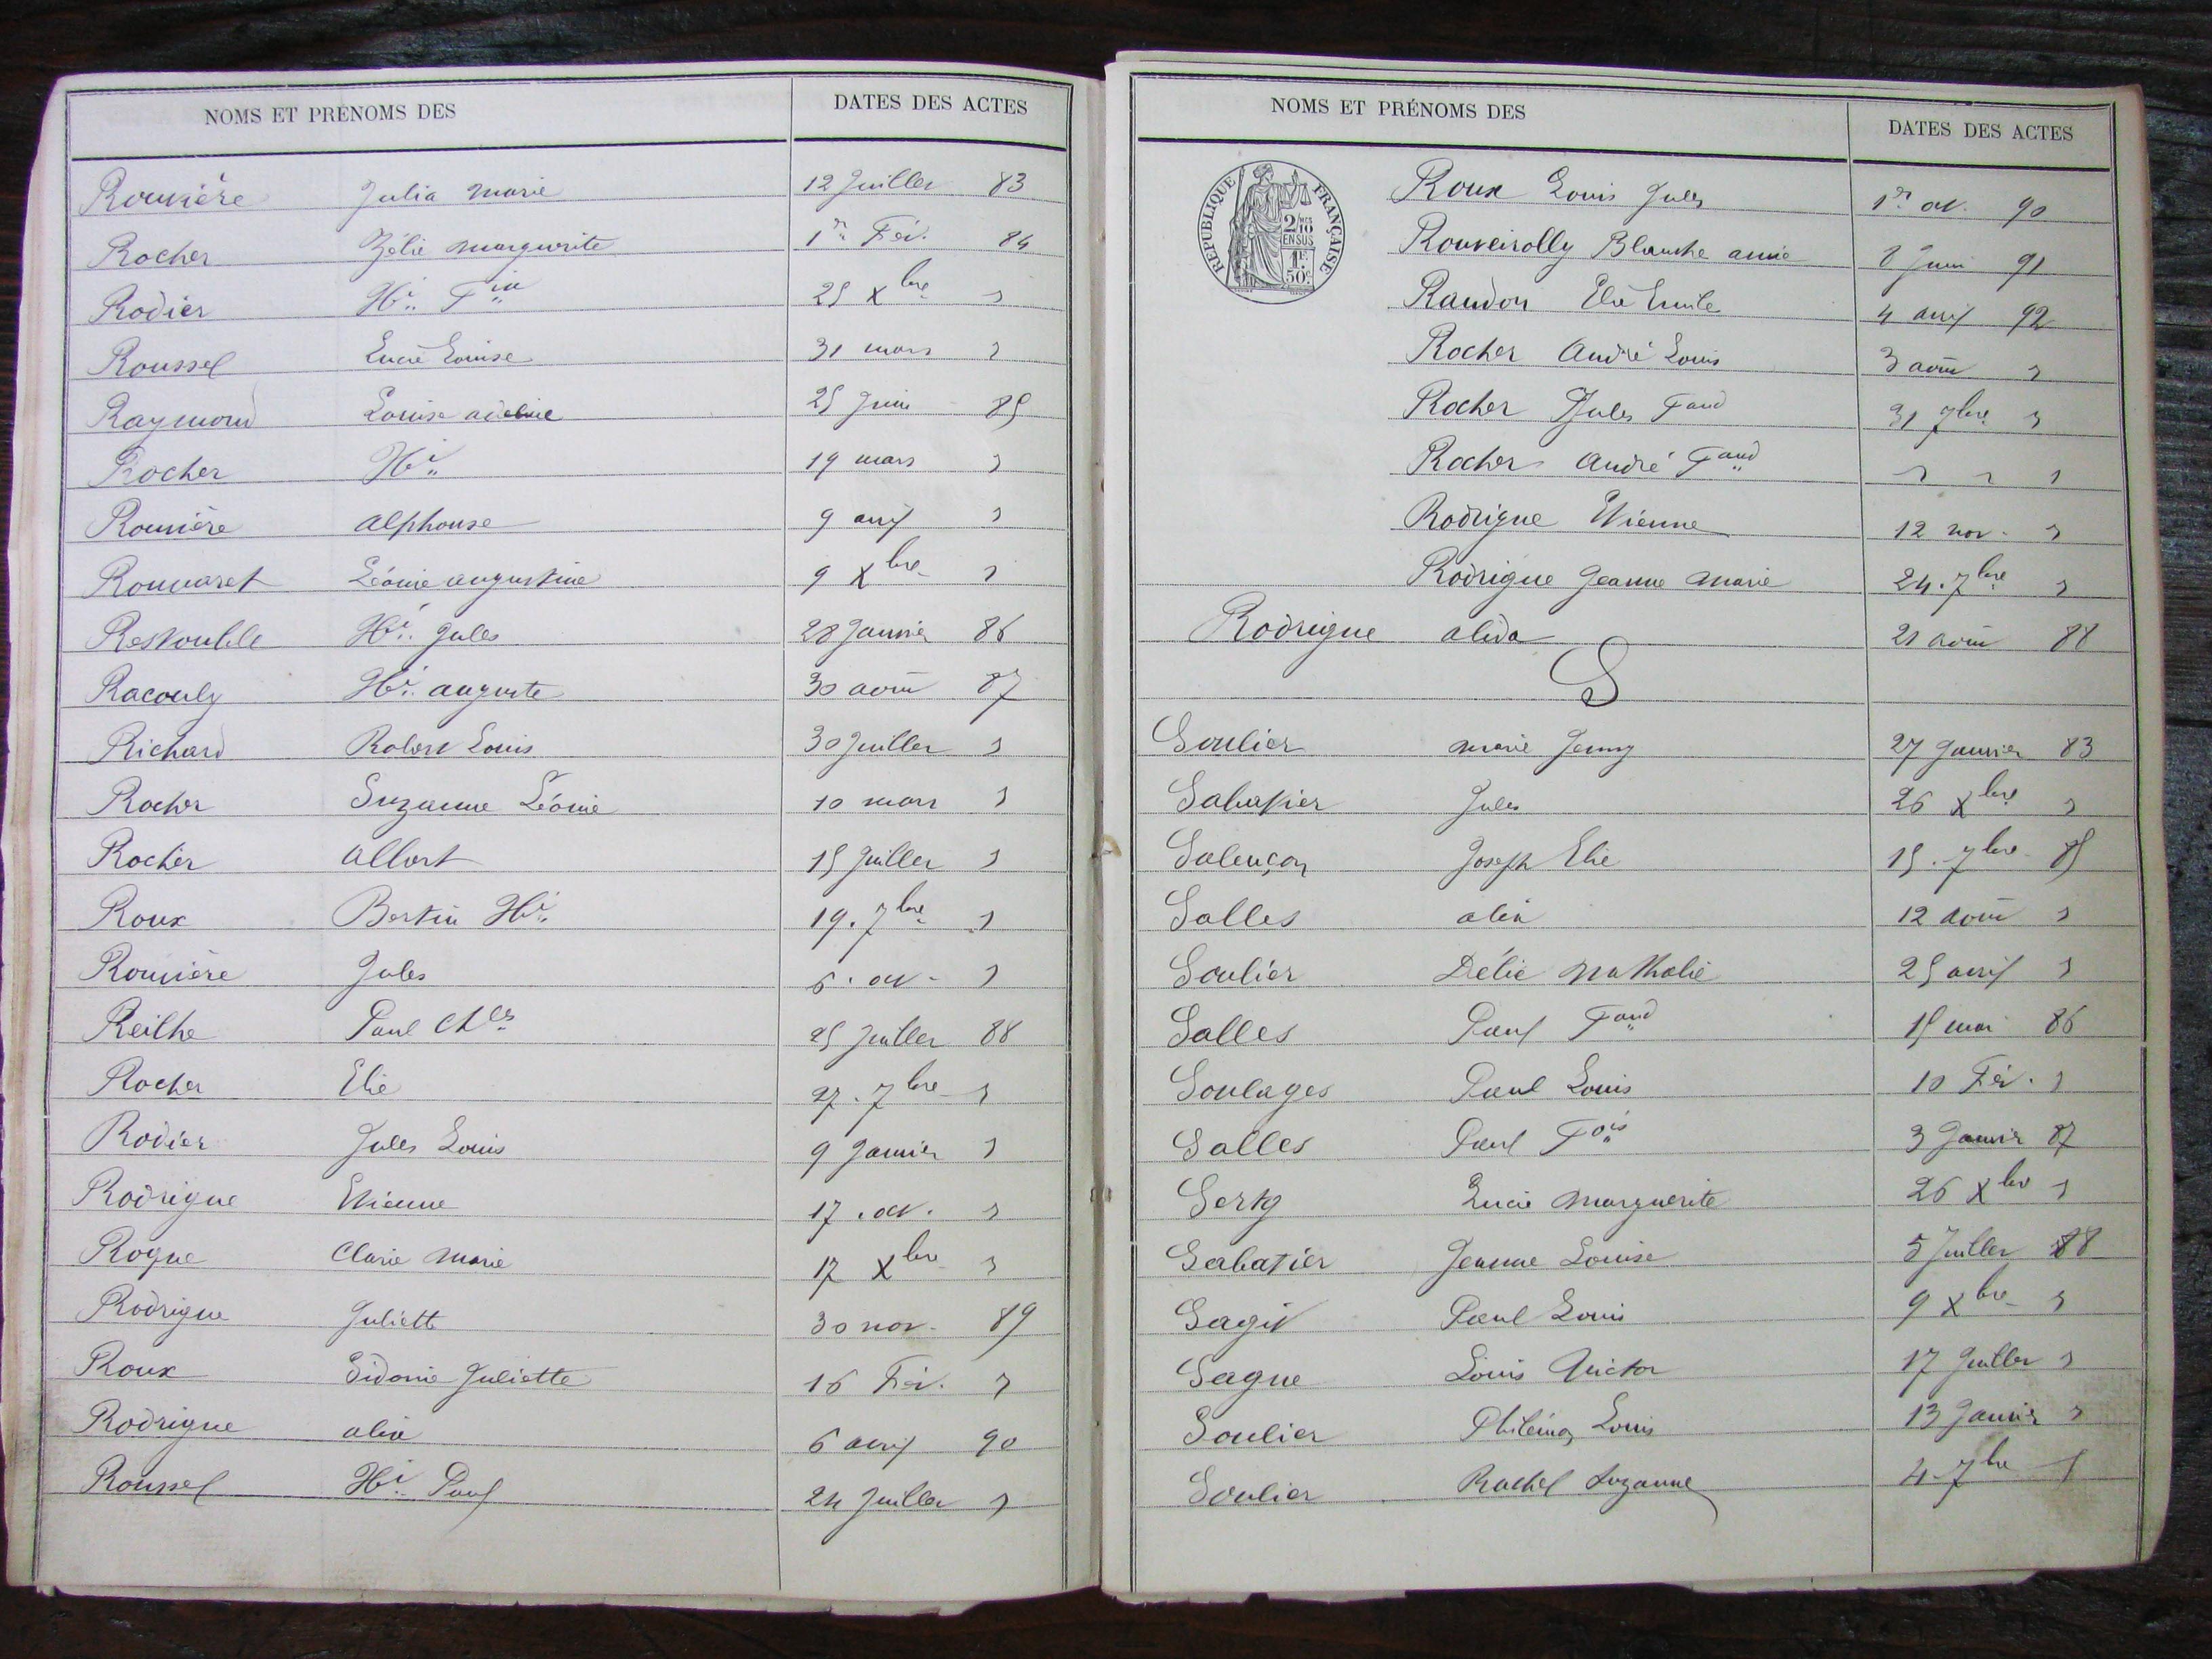 NOMS ET PRENOMS DES DATES DES ACTES
Rouvière Julia Marie 12 Juillet 83
Rocher Zélie Marguerite 1er Fév. 84
Rodier Hri Fin 25 Xbre "
Roussel Lucie Louise 31 mars "
Raymond Louise Adeline 25 Juin 85
Rocher Hri 19 mars "
Rouvière Alphonse 9 avril "
Rouvaret Léonie Augustine 9 Xbre "
Restouble Hri Jules 28 Janvier 86
Racouly Hri Auguste 30 août 87
Richard Robert Louis 30 Juillet "
Rocher Suzanne Léonie 10 mars "
Rocher Albert 15 Juillet "
Roux Bertin Hri 19. 7bre "
Rouvière Jules 6. oct. "
Reilhe Paul Chles 25 Juillet 88
Rocher Elie 27. 7bre "
Rodier Jules Louis 9 Janvier "
Rodrigue Etienne 17. oct. "
Roque Marie 17 Xbre "
Rodrigue Juliette 30 nov. 89
Roux Sidonie Juliette 16 Fév. "
Rodrigue Alix 6 avril 90
Roussel Hri Paul 24 Juillet "
NOMS ET PRÉNOMS DES DATES DES ACTES
RÉPUBLIQUE FRANÇAISE
2/10
EN SUS
1F
50c
Roux Louis Jules 1er oct. 90
Rouveirolly Blanche 8 Juin 91
Randon Elie Emile 4 avril 92
Rocher André Louis 3 août "
Rocher Jules Fand 31 7bre "
Rocher André Fand " " "
Rodrigue Etienne 12 nov. "
Rodrigue Jeanne Marie 24. 7bre "
Rodrigue Alida 21 août 88
S
Soulier Marie Jenny 27 Janvier 83
Sabatier Jules 26 Xbre "
Salençon Joseph Elie 15. 7bre 85
Salles Alix 12 août "
Soulier Délie Nathalie 25 avril "
Salles Paul Fand 15 mai 86
Soulages Paul Louis 10 Fév. "
Salles Paul Fois 3 Janvier 87
Lucie Marguerite 26 Xbre "
Sabatier Jeanne Louise 5 Juillet 88
Sagit Paul Louis 9 Xbre "
Sagne Louis Victor 17 Juillet "
Soulier Philémon Louis 13 Janvier "
Soulier Rachel Suzanne 4. 7bre "